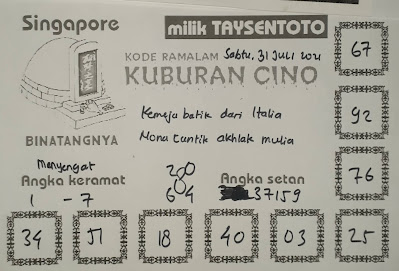 Singapore
milik TAYSENTOTO
KODE RAMALAM Sabtu, 31 Juli 2021
KUBURAN CINO
67
Kemeja batik dari Italia
Nona cantik akhlak mulia
92
BINATANGNYA
Menyengat
Angka keramat
1 - 7
200
604
Angka setan
37159
76
34
51
18
40
03
25